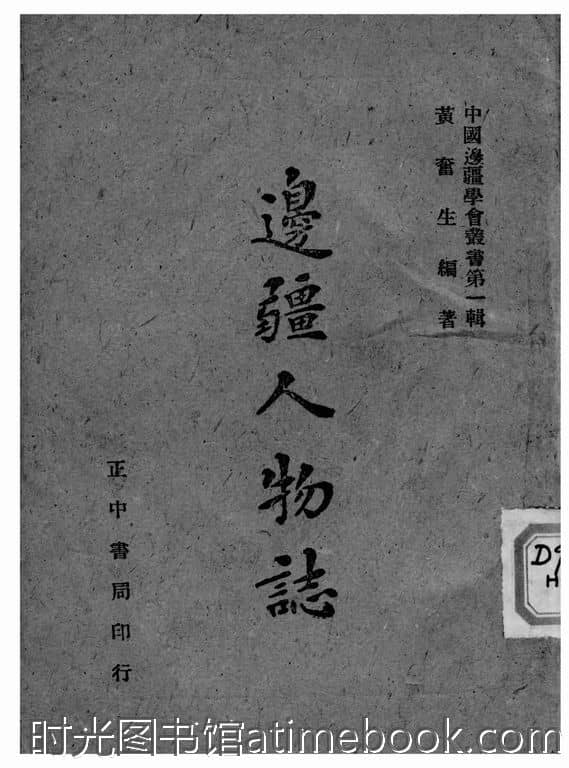 中國邊疆學會叢書第一輯
黃奮生編著
邊疆人物誌
正中書局印行
H
时光图书馆atimebook.com